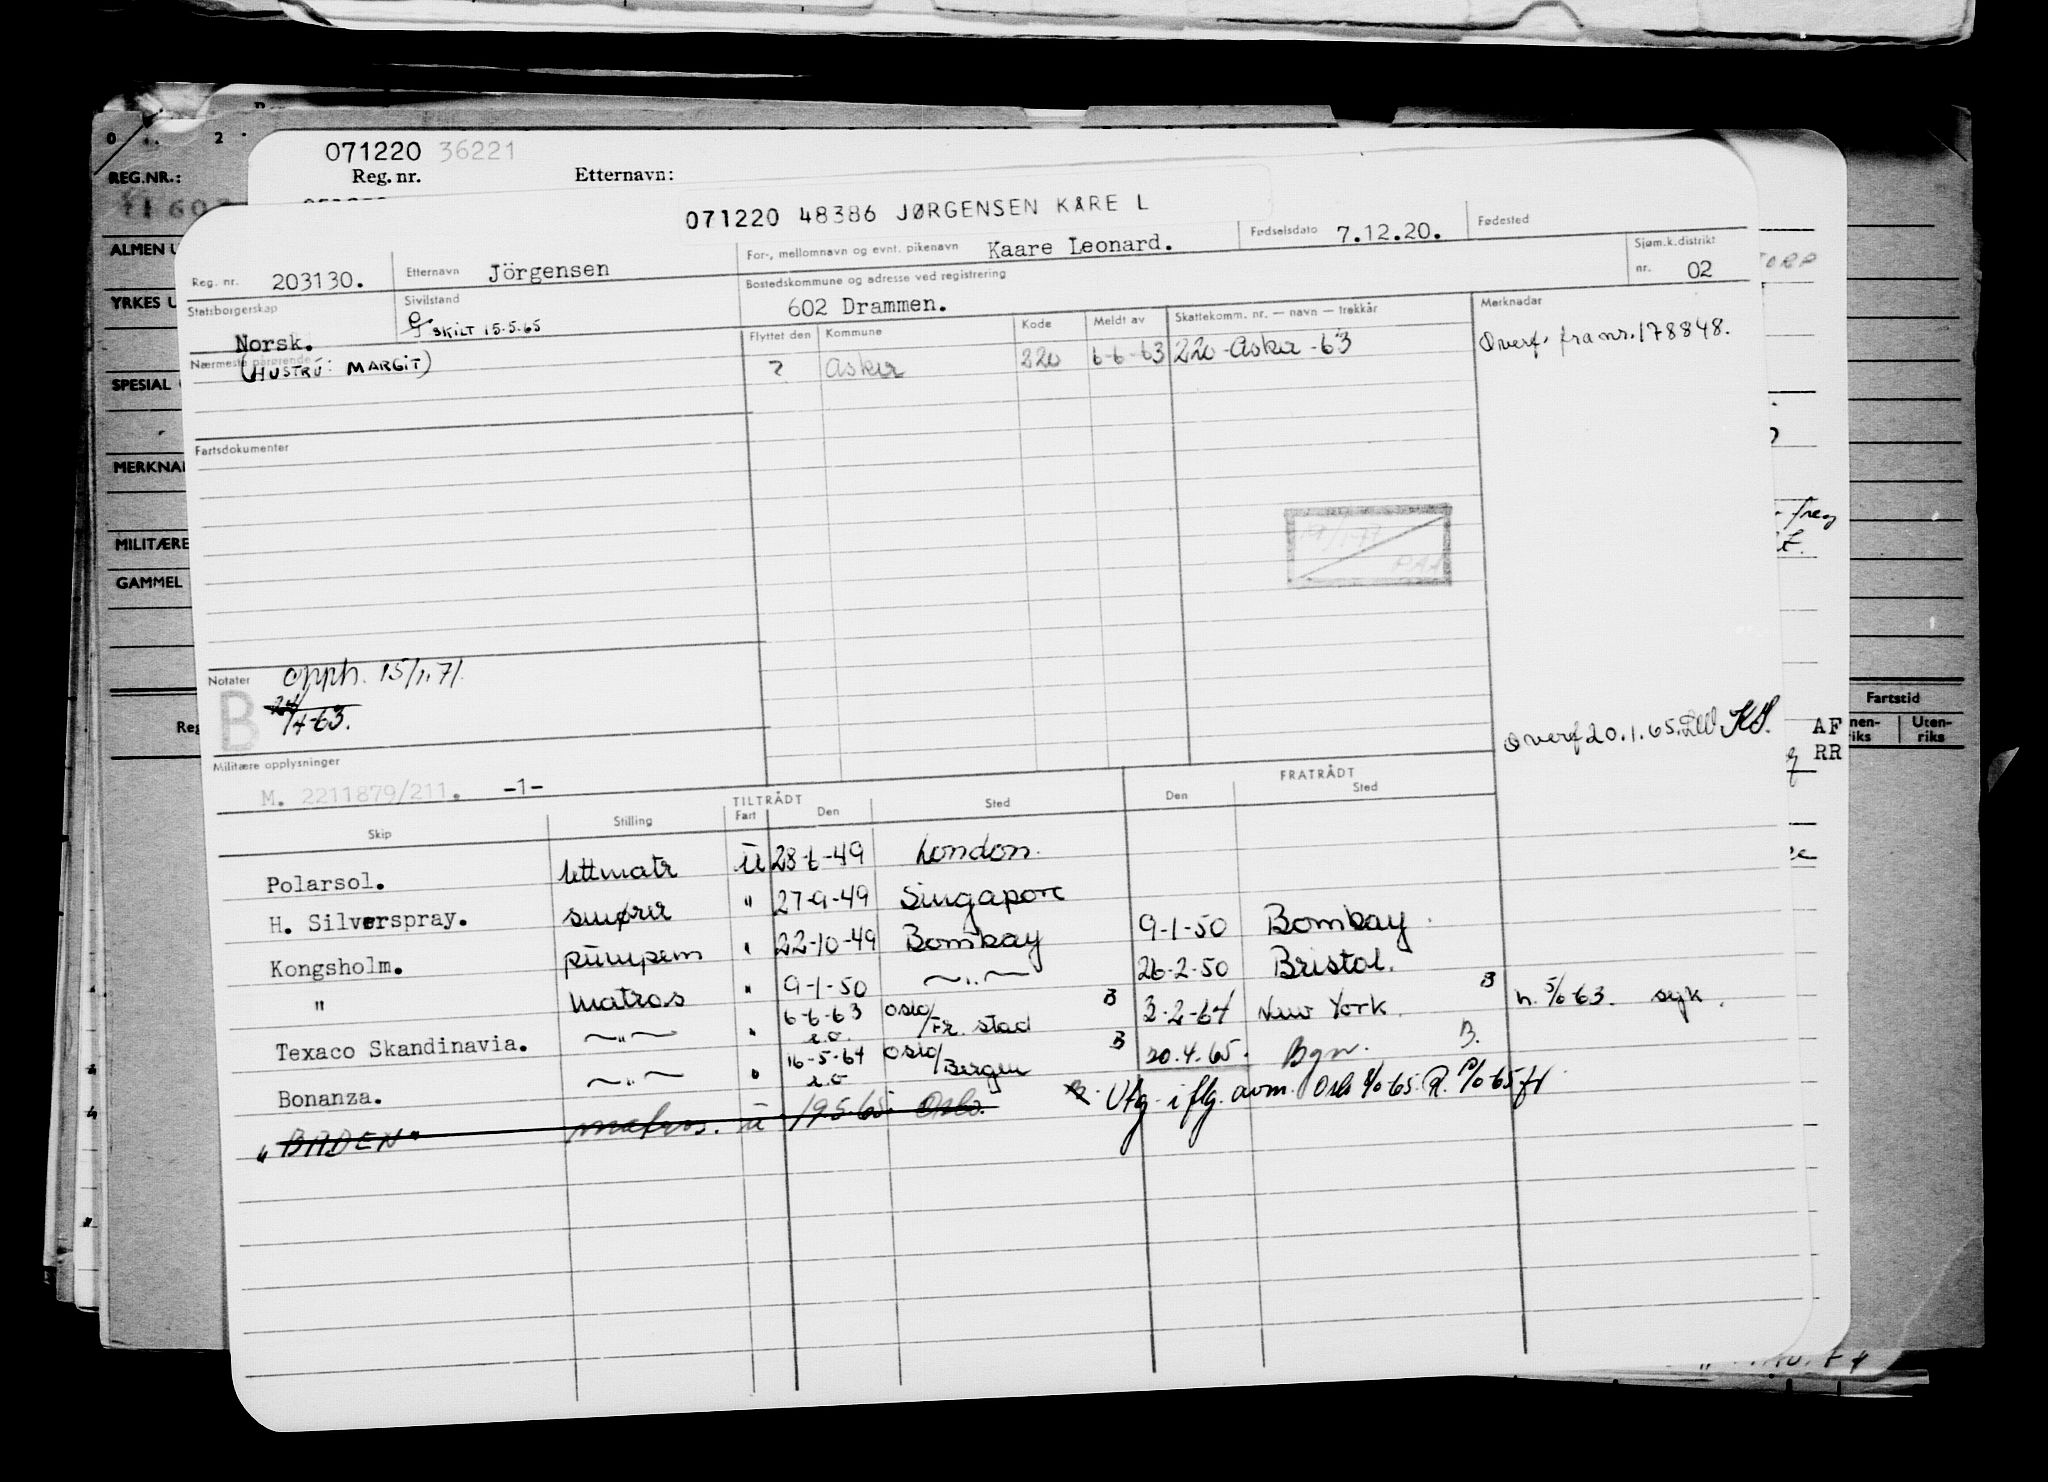 071220 36221
Reg. nr. Etternavn:
071220 48386 JØRGENSEN KÅRE L
Reg. nr. 203130. Etternavn Jörgensen For-, mellomnavn og evnt. pikenavn Kaare Leonard. Fødselsdato 7.12.20. Fødested
Statsborgerskap Norsk. Sivilstand G SKILT 15-5-65 Bostedskommune og adresse ved registrering 602 Drammen. Sjøm.k.distrikt nr. 02
Nærmeste pårørende (HUSTRU: MARGIT)
Flyttet den Kommune Kode Meldt av Skattekomm. nr. — navn — trekkår Merknader
? Asker 220 6-6-63 220-Asker-63 Overf. fra nr. 178848.
Fartsdokumenter
Notater opph. 15/1.71.
B 24/4-63.
Overf 20.1.65. KS.
Militære opplysninger
M. 2211879/211. -1-
TILTRÅDT FRATRÅDT
Skip Stilling Fart Den Sted Den Sted
Polarsol. lettmatr U 28-6-49 London.
H. Silverspray. smører " 27-9-49 Singapore
Kongsholm. pumpem " 22-10-49 Bombay 9-1-50 Bombay.
" matros " 9-1-50 —"— 26-2-50 Bristol.
Texaco Skandinavia. —"— " 6-6-63 e.o. Oslo/Fr. stad B 2-2-64 New York. B n. 5/6-63. syk.
Bonanza. —"— " 16-5-64 e.o Oslo/Bergen B 20.4.65. Bgn. B.
"BADEN" matros. U 19.5.65 Oslo. Utg. i flg. avm. Oslo
REG.NR.:
ALMEN U
YRKES U
SPESIAL
MERKNA
MILITÆRE
GAMMEL
Reg
Fartstid
Uten-
riks
AF
RR